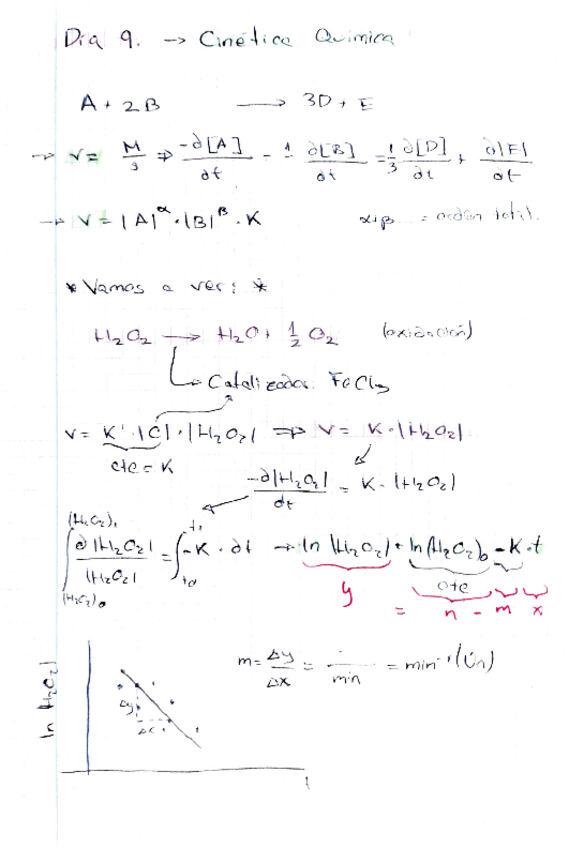 Día 9. → Cinética Química
A + 2B → 3D + E
→ v = M/s ⇒ -∂[A]/∂t - 1 ∂[B]/∂t = 1/3 ∂[D]/∂t + ∂|E|/∂t
→ v = |A|^α · |B|^β · K α+β = orden total.
* Vamos a ver: *
H₂O₂ → H₂O + 1/2 O₂ (oxidación)
Catalizador: FeCl₃
v = K' · |C| · |H₂O₂| ⇒ v = K · |H₂O₂|
cte = K
-∂|H₂O₂|/dt = K · |H₂O₂|
(H₂O₂)₁ t₁
∫ ∂|H₂O₂|/|H₂O₂| = ∫ -K · ∂t → ln |H₂O₂| = ln(H₂O₂)₀ - K · t
(H₂O₂)₀ t₀ cte
y = n - m x
m = Δy/Δx = /min = min⁻¹
ln H₂O₂
Δy
Δx
t